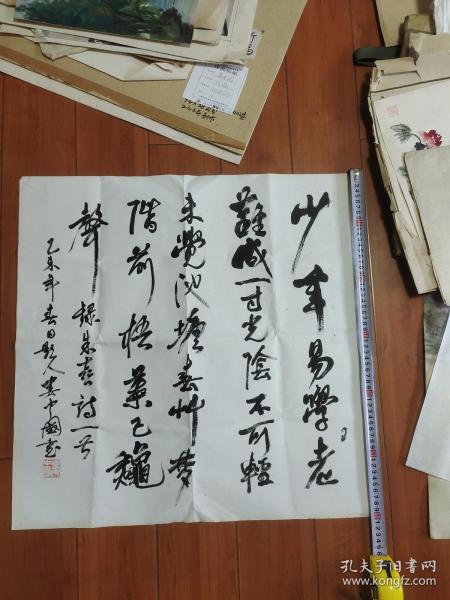 少年易學老
難成一寸光陰不可輕
未覺池塘春艸夢
階前梧葉已龝
聲 録朱熹詩一首
乙未年春日人婁中國書
孔夫子旧书网
www.kongfz.com